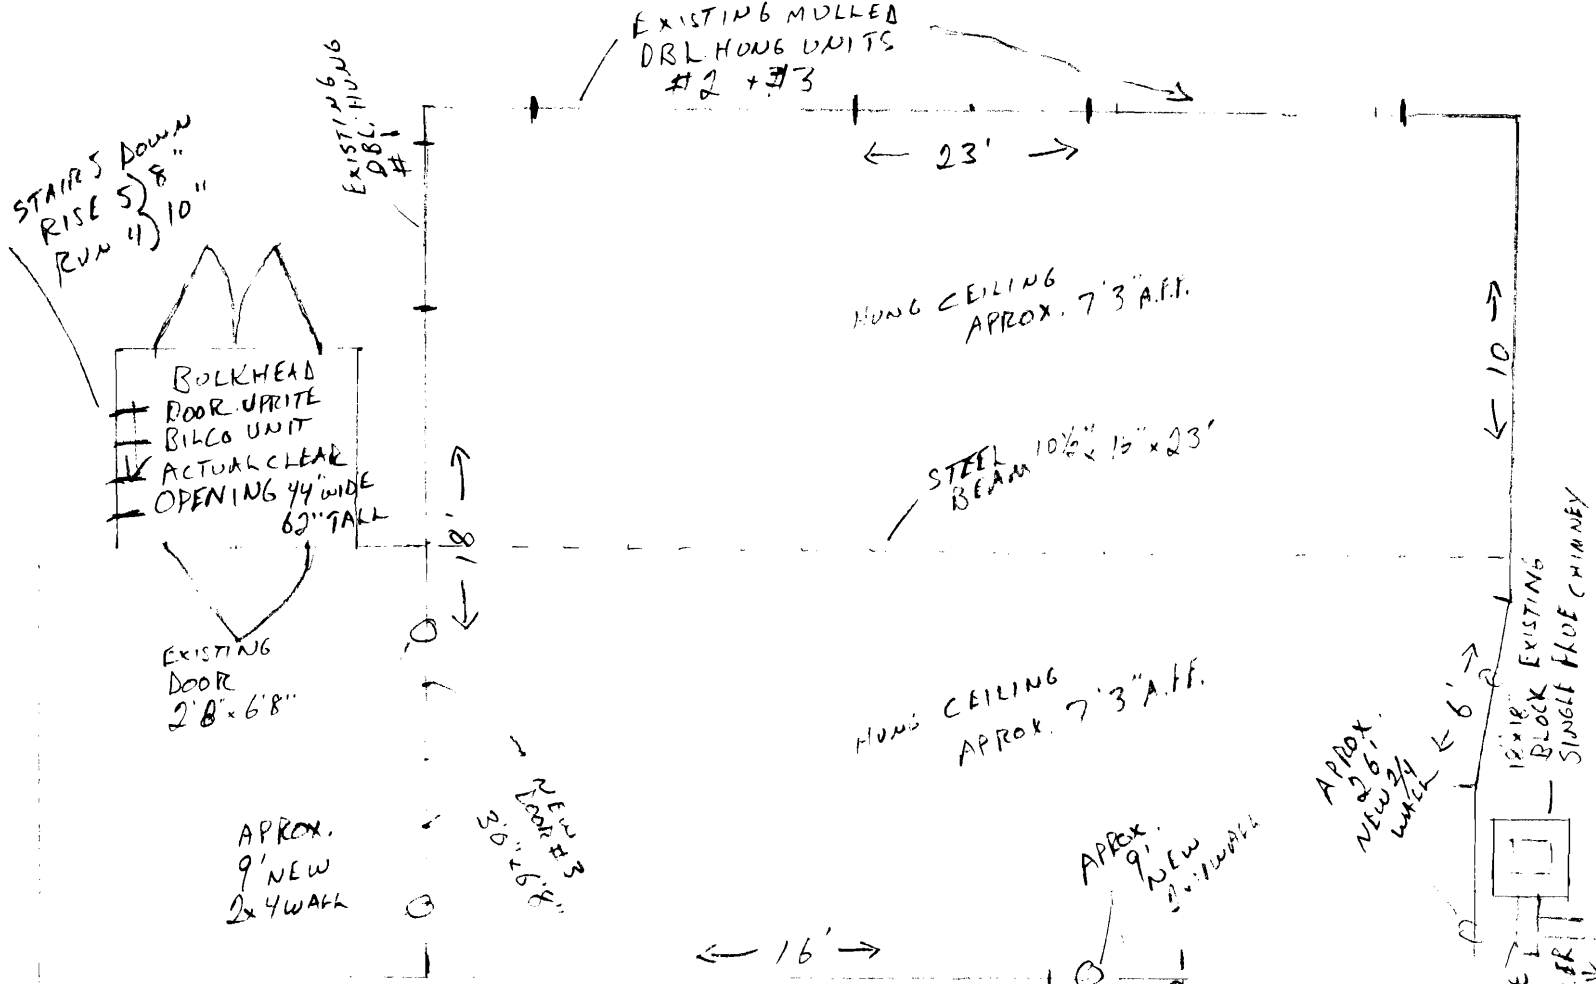 EXISTING MULLED
DBL. HUNG UNITS
#2 + #3
EXISTING
DBL. HUNG
#1
← 23' →
STAIRS DOWN
RISE 5) 8"
RUN 4) 10"
HUNG CEILING
APROX. 7'3" A.F.F.
← 10 →
BULKHEAD
DOOR UPRITE
BILCO UNIT
ACTUAL CLEAR
OPENING 44" WIDE
62" TALL
← 18' →
STEEL
BEAM
x 23'
EXISTING
DOOR
2'8" x 6'8"
HUNG CEILING
APROX. 7'3" A.F.F.
← 6' →
BLOCK EXISTING
SINGLE FLUE CHIMNEY
APROX.
26'
NEW 2/4
WALL
NEW
DOOR #3
3'0" x 6'8"
APROX.
9' NEW
2x4 WALL
APROX.
9'
NEW
2x4 WALL
← 16' →